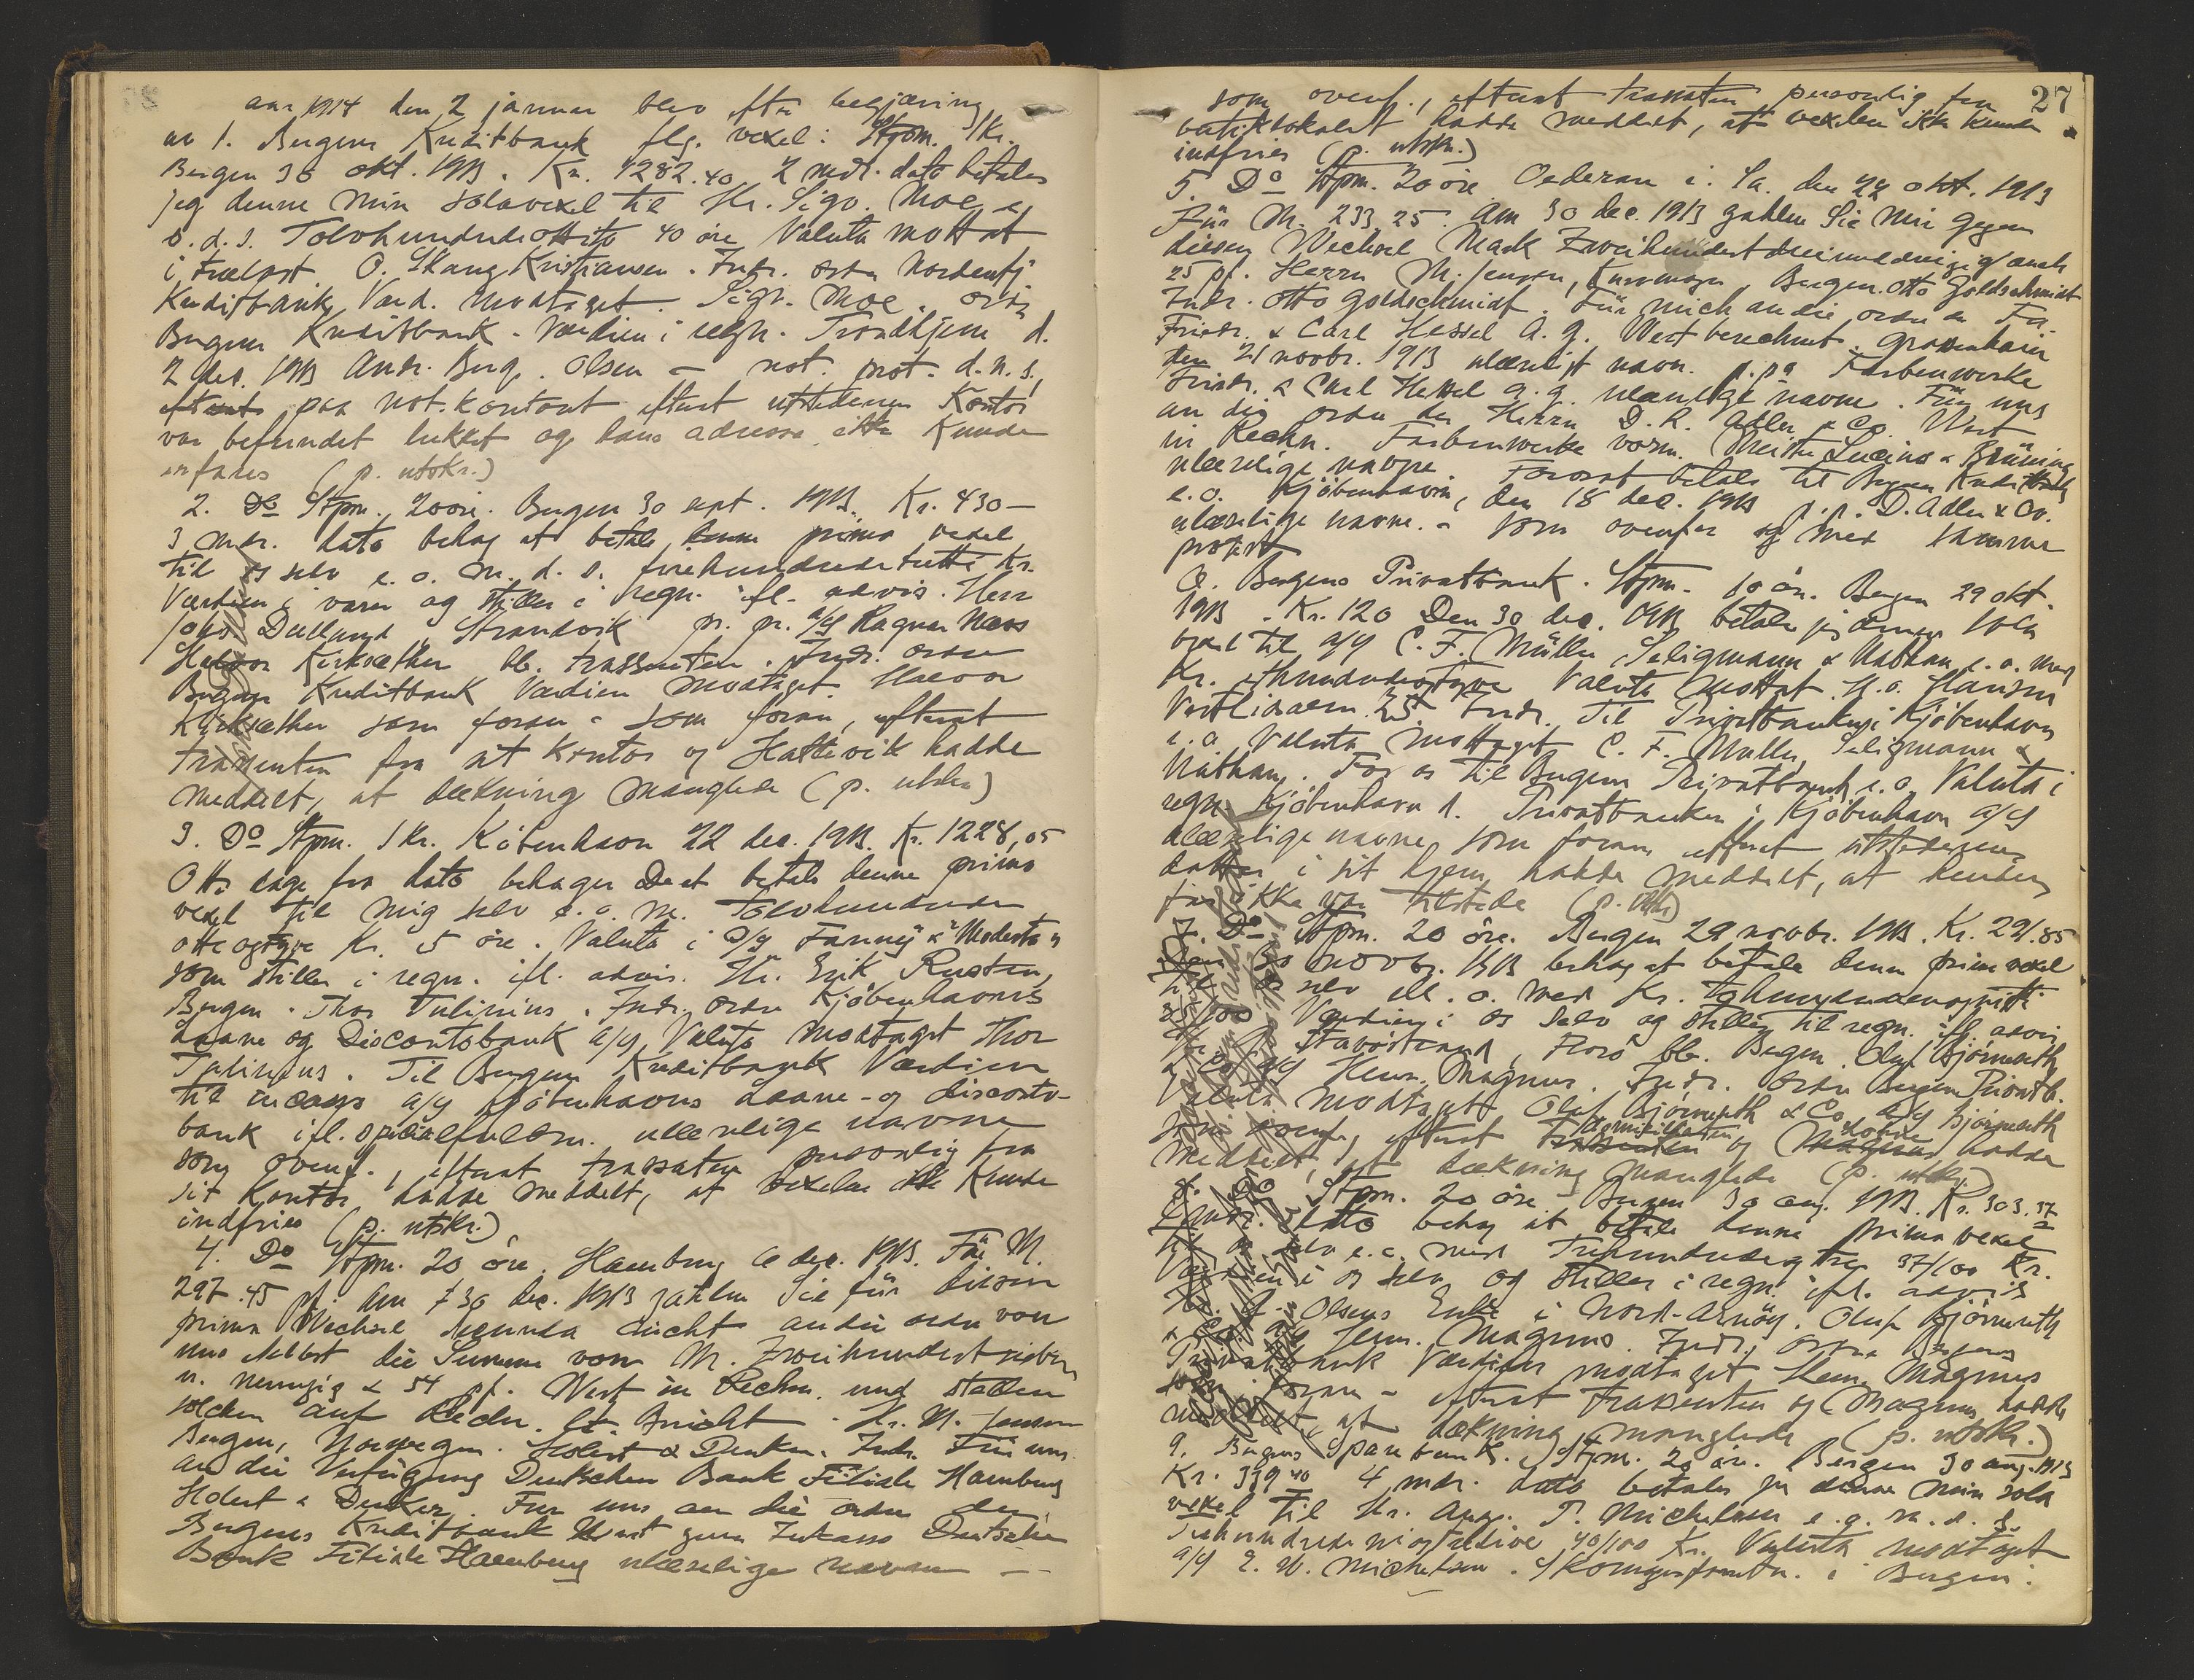 aar 1914 den 2 januar blev efter begjæring
av 1. Bergens Kreditbank flg. vexel: Stpm. 1 kr.
Bergen 30 okt. 1913. Kr. 1282.40 2 mdr. dato betaler
jeg denne min solavexel til Hr. Sigv. Moe e.
o. d. s. Tolvhundredeottito 40 øre Valuta mottat
i trælast O. Skaug Kristiansen. Indr. ordre Nordenfj.
Kreditbank, Værd. modtaget. Sigv. Moe. ordre
Bergens Kreditbank. Værdien i regn. Trondhjem d.
2 des. 1913 Andr. Berg. Olsen — not. prot. d. n. s.,
efterat paa not. kontort efterat utstederens Kontor
var befundet lukket og hans adresse ikke kunde
erfares (p. utskr.)
2. Do Stpm. 20 øre. Bergen 30 sept. 1913. Kr. 430 —
3 mdr. dato behag at betale denne prima vexel
til os selv e. o. m. d. s. firehundredetretti Kr.
Værdien i varer og stilles i regn. ifl. advis. Herr
Johs. Dalland, Strandvik pr. pr. A/S Ragnar Næss
Halvor Kirksæther bl. trassenten. Indr. ordre
Bergens Kreditbank Værdien modtaget. Halvor
Kirksæther som foran - som foran, efterat
trassenten fra sit Kontor og Hattevik hadde
meddelt, at dækning manglede (p. utskr.)
3. Do Stpm. 1 kr. Köbenhavn 22 dec. 1913. Kr. 1228,05
Otte dage fra dato behager De at betale denne prima
vexel til mig selv e. o. m. Tolvhundrede
otteogtyve Kr. 5 øre. Valuta i D/S Fanny & "Modesta"
som stilles i regn. ifl. advis. Hr. Erik Rusten,
Bergen. Thor Tulinius. Indr. ordre Kjöbenhavns
Laane og Discontobank A/S Valuta modtaget Thor
Tulinius. Til Bergens Kreditbank Værdien
til incasso A/S Kjöbenhavns Laane- og disconto-
bank ifl. specialfuldm. ulæselige navne
som ovenf., efterat trassaten personlig fra
sit Kontor hadde meddelt, at vexelen ikke kunde
indfries (p. utskr.)
4. Do Stpm. 20 øre. Hamburg 6 dec. 1913. Für M.
297.45 pf. Am 30 Dec. 1913 zahlen Sie für diesen
prima Wechsel secunda nicht an die ordre von
uns selbst die Summe von M. Zweihundert sieben
u. neunzig & 54 pf. Wert in Rechn. und stellen
solchen auf Rechn. lt. Bericht. Hr. M. Jensen
Bergen, Norwegen. Holert & Denker. Indr. Für uns
an die Verfügung Deutschen Bank Filiale Hamburg
Holert & Denker. Für uns an die ordre der
Bergens Kreditbank Wert zum Inkasso Deutsche
Bank Filiale Hamburg ulæselige navne —
27
som ovenf., efterat trassaten personlig fra
butiklokalet hadde meddelt, at vexelen ikke kunde
indfries (p. utskr.)
5. Do Stpm. 20 øre Oederan i. Sa. den 22 okt. 1913
Für M. 233.25. Am 30 dec. 1913 zahlen Sie mir gegen
diesen Wechsel Mark Zweihundert dreiunddreizig auch
25 pf. Herrn M. Jensen, Bergen. Otto Goldschmidt
Indr. Otto Goldschmidt. Für mich an die ordre der Fa.
Friedr. & Carl Hessel A. G. Wert berechnet. Grossenhain
den 21 novbr. 1913 ulæseligt navn. p. pa Farbenwerke
Friedr. & Carl Hessel A. G. ulæselige navne. Für uns
an die ordre der Herrn D. R. Adler & Co. Wert
in Rechn. Farbenwerke vorm. Meister Lucius & Brüning
ulæselige navne. Foranst. betales til Bergens Kreditbank
e. o. Kjöbenhavn, den 18 dec. 1913 p. p. D. Adler & Co.
ulæselige navne. - som ovenfor og med samme
protest
6. Bergens Privatbank. Stpm. 10 øre. Bergen 29 okt.
1913. Kr. 120 Den 30 dec. 1913 betaler jeg denne sola
vexel til A/S C. F. Müller, Seligmann & Nathan e. o. med
Kr. ethundredeogtyve Valuta mottat. H. o. Hansen
Vestlidsalm. 25. Indr. Til Privatbanken i Kjöbenhavn
e. o. Valuta mottaget C. F. Müller, Seligmann &
Nathan. For os til Bergens Privatbank e. o. Valuta i
regn. Kjöbenhavn d. Privatbanken i Kjöbenhavn A/S
ulæselige navne, som foran, efterat utstederens
datter i sit hjem hadde meddelt, at hendes
far ikke var tilstede (p. utskr.)
7. Do Stpm. 20 øre. Bergen 29 novbr. 1913. Kr. 291.85
Den 30 novbr. 1913 behag at betale denne prima vexel
til os selv ell. o. med Kr. Tohundreenognitti
85/100 Værdien i os selv og stilles til regn. ifl. advis
Stavöstrand, Florö bl. Bergen. Oluf Björneseth
& Co A/S Henr. Magnus. Indr. ordre Bergens Privatb.
Valuta modtaget Oluf Björneseth & Co. A/S Björneseth
som ovenf., efterat domiciliaten og hadde
meddelt, at dækning manglede (p. utskr.)
8. Do Stpm. 20 øre Bergen 30 aug. 1913. Kr. 303.37
4 mdr. dato behag at betale denne prima vexel
til os selv e. o. med Trehundredeogtre 37/100 Kr.
Værdien i os selv og stilles i regn. ifl. advis
Olsens Enke i Nord-Arnöy. Oluf Björneseth
& Co. A/S Henr. Magnus. Indr. ordre Bergens
Privatbank Værdien modtaget Henr. Magnus
som foran - efterat trassenten og Magnus hadde
meddelt, at dækning manglede (p. utskr.)
9. Bergens Sparebank. Stpm. 20 øre. Bergen 30 aug. 1913
Kr. 339 40 4 mdr. dato betaler jeg denne min sola
vexel til Hr. Aug. T. Michelsen e. o. m. d. s.
Trehundrede niogtredive 40/100 Kr. Valuta modtaget
A/S E. W. Michelsen. i Bergen.